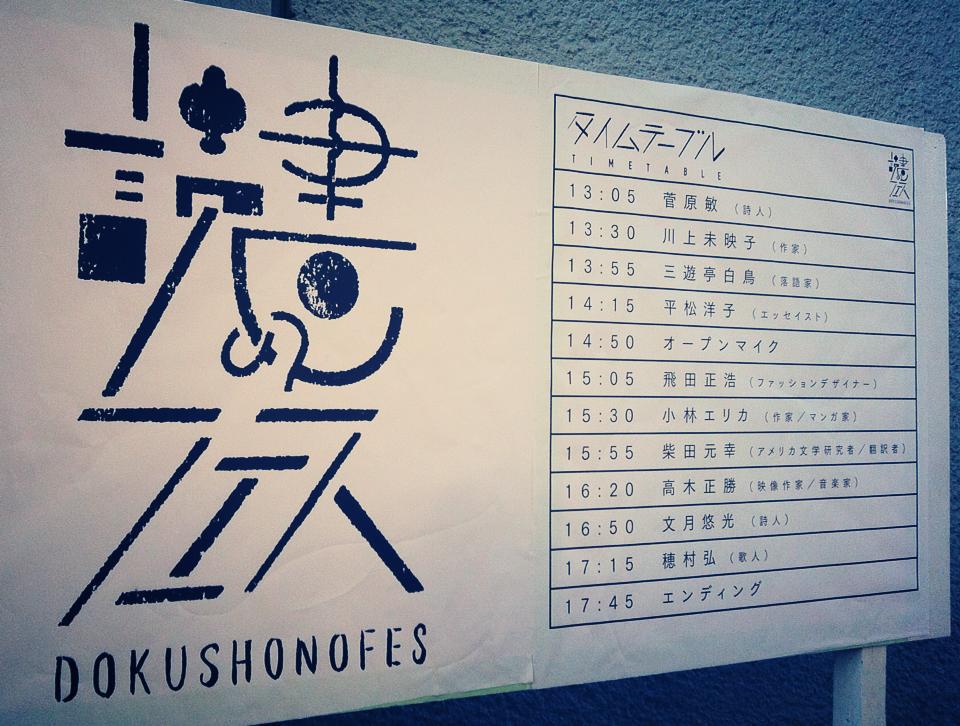 読書のフェス
DOKUSHONOFES
タイムテーブル
TIMETABLE
13:05 菅原敏 (詩人)
13:30 川上未映子 (作家)
13:55 三遊亭白鳥 (落語家)
14:15 平松洋子 (エッセイスト)
14:50 オープンマイク
15:05 飛田正浩 (ファッションデザイナー)
15:30 小林エリカ (作家/マンガ家)
15:55 柴田元幸 (アメリカ文学研究者/翻訳者)
16:20 高木正勝 (映像作家/音楽家)
16:50 文月悠光 (詩人)
17:15 穂村弘 (歌人)
17:45 エンディング